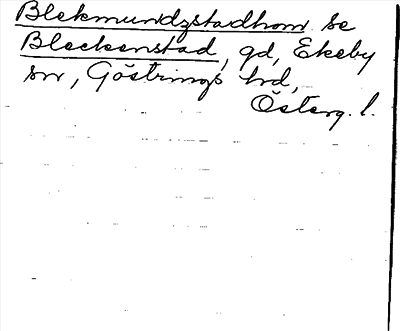 Blekmundzstadhom se
Bleckenstad, gd, Ekeby
sn, Göstrings hd,
Österg. l.